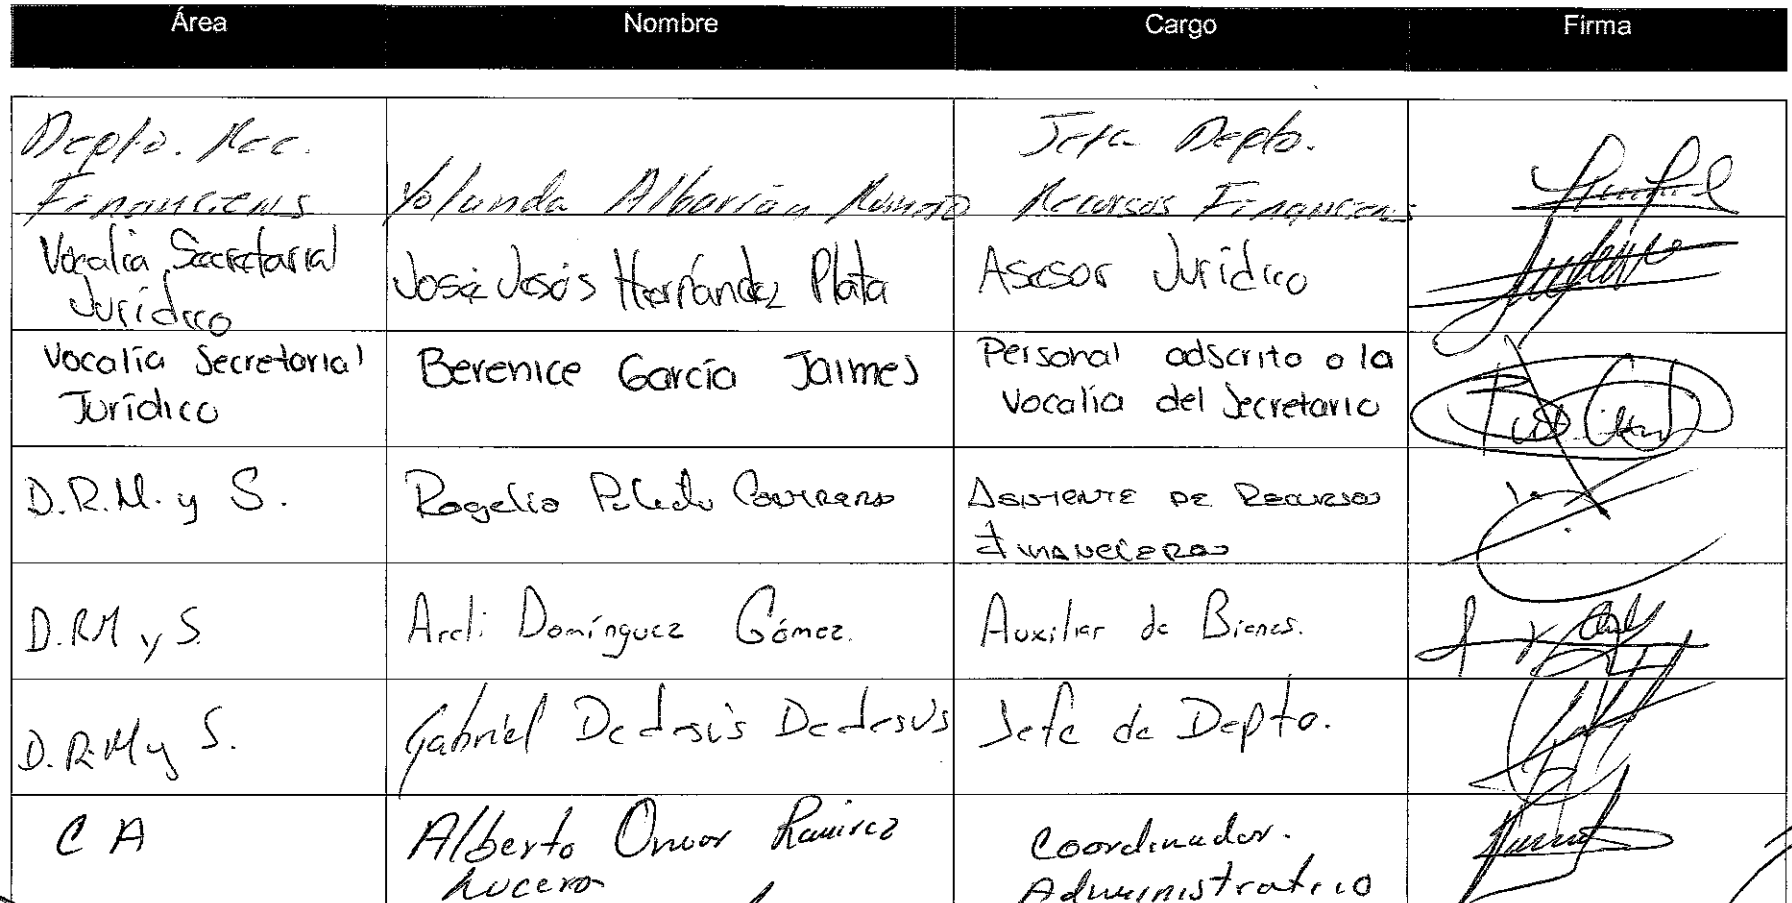 Área Nombre Cargo Firma
Depto. Rec. Jefa Depto.
Financieros Yolanda Albarrán Recursos Financieros
Vocalía Secretarial José Jesús Hernández Plata Asesor Jurídico
Jurídico
Vocalía Secretarial Berenice García Jaimes Personal adscrito a la
Jurídico Vocalía del Secretario
D.R.M. y S. Rogelio Asistente de Recursos
Financieros
D.RM y S. Areli Domínguez Gómez. Auxiliar de Bienes.
D.R.M y S. Gabriel De Jesús De Jesús Jefe de Depto.
C A Alberto Omar Ramirez Coordinador.
Lucero Administrativo